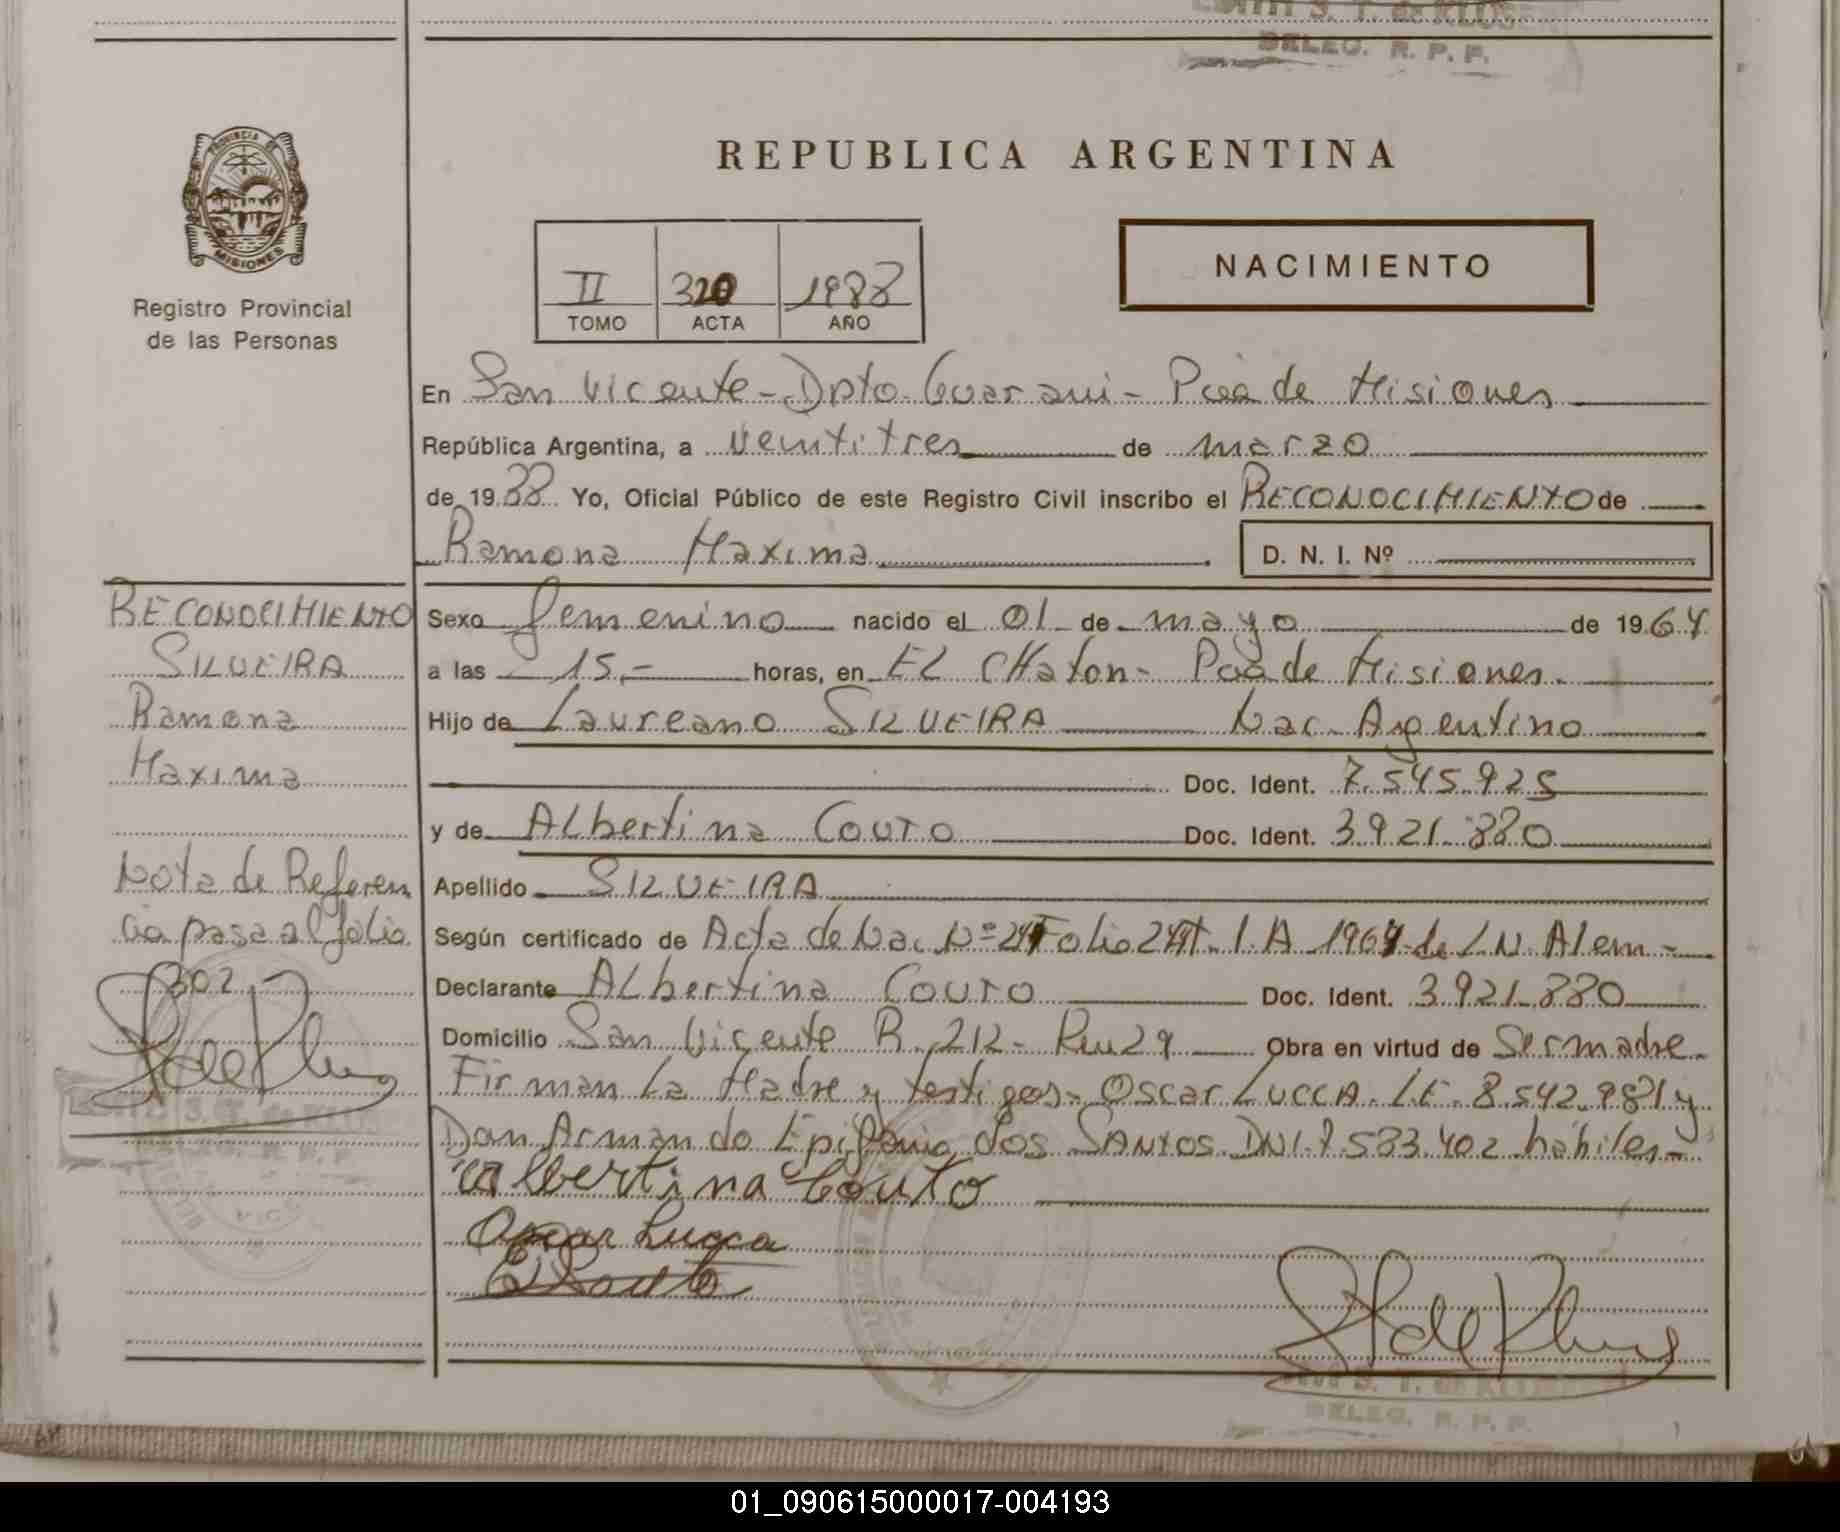 DELEG. R. P. P.
REPUBLICA ARGENTINA
PROVINCIA DE
MISIONES
Registro Provincial
de las Personas
II 320 1988
TOMO ACTA AÑO
NACIMIENTO
En San Vicente - Dpto. Guarani - Pcia de Misiones
República Argentina, a veintitres de marzo
de 1988 Yo, Oficial Público de este Registro Civil inscribo el RECONOCIMIENTO de
Ramona Maxima D. N. I. Nº
RECONOCIMIENTO
SILVEIRA
Ramona
Maxima
Nota de Referen
cia pasa al folio
302
Sexo femenino nacido el 01 de mayo de 1964
a las 15.- horas, en EL CHaton- Pcia de Misiones.
Hijo de Laureano SILVEIRA Nac. Argentino
Doc. Ident. 7.545.925
y de ALbertina COUTO Doc. Ident. 3.921.880
Apellido SILVEIRA
Según certificado de Acta de Nac. Nº Folio T. I. A 1964 de L N. Alem -
Declarante ALbertina COUTO Doc. Ident. 3.921.880
Domicilio San Vicente R. 212 - Km 29 Obra en virtud de Ser madre.
Firman La Madre y testigos- Oscar LUCCA. L.E. 8.542.981 y
Don Armando Epifanio dos SANTOS. DNI. 7.583.402 hábiles-
Albertina Couto
Oscar Lucca
DELEG. R. P. P.
01_090615000017-004193